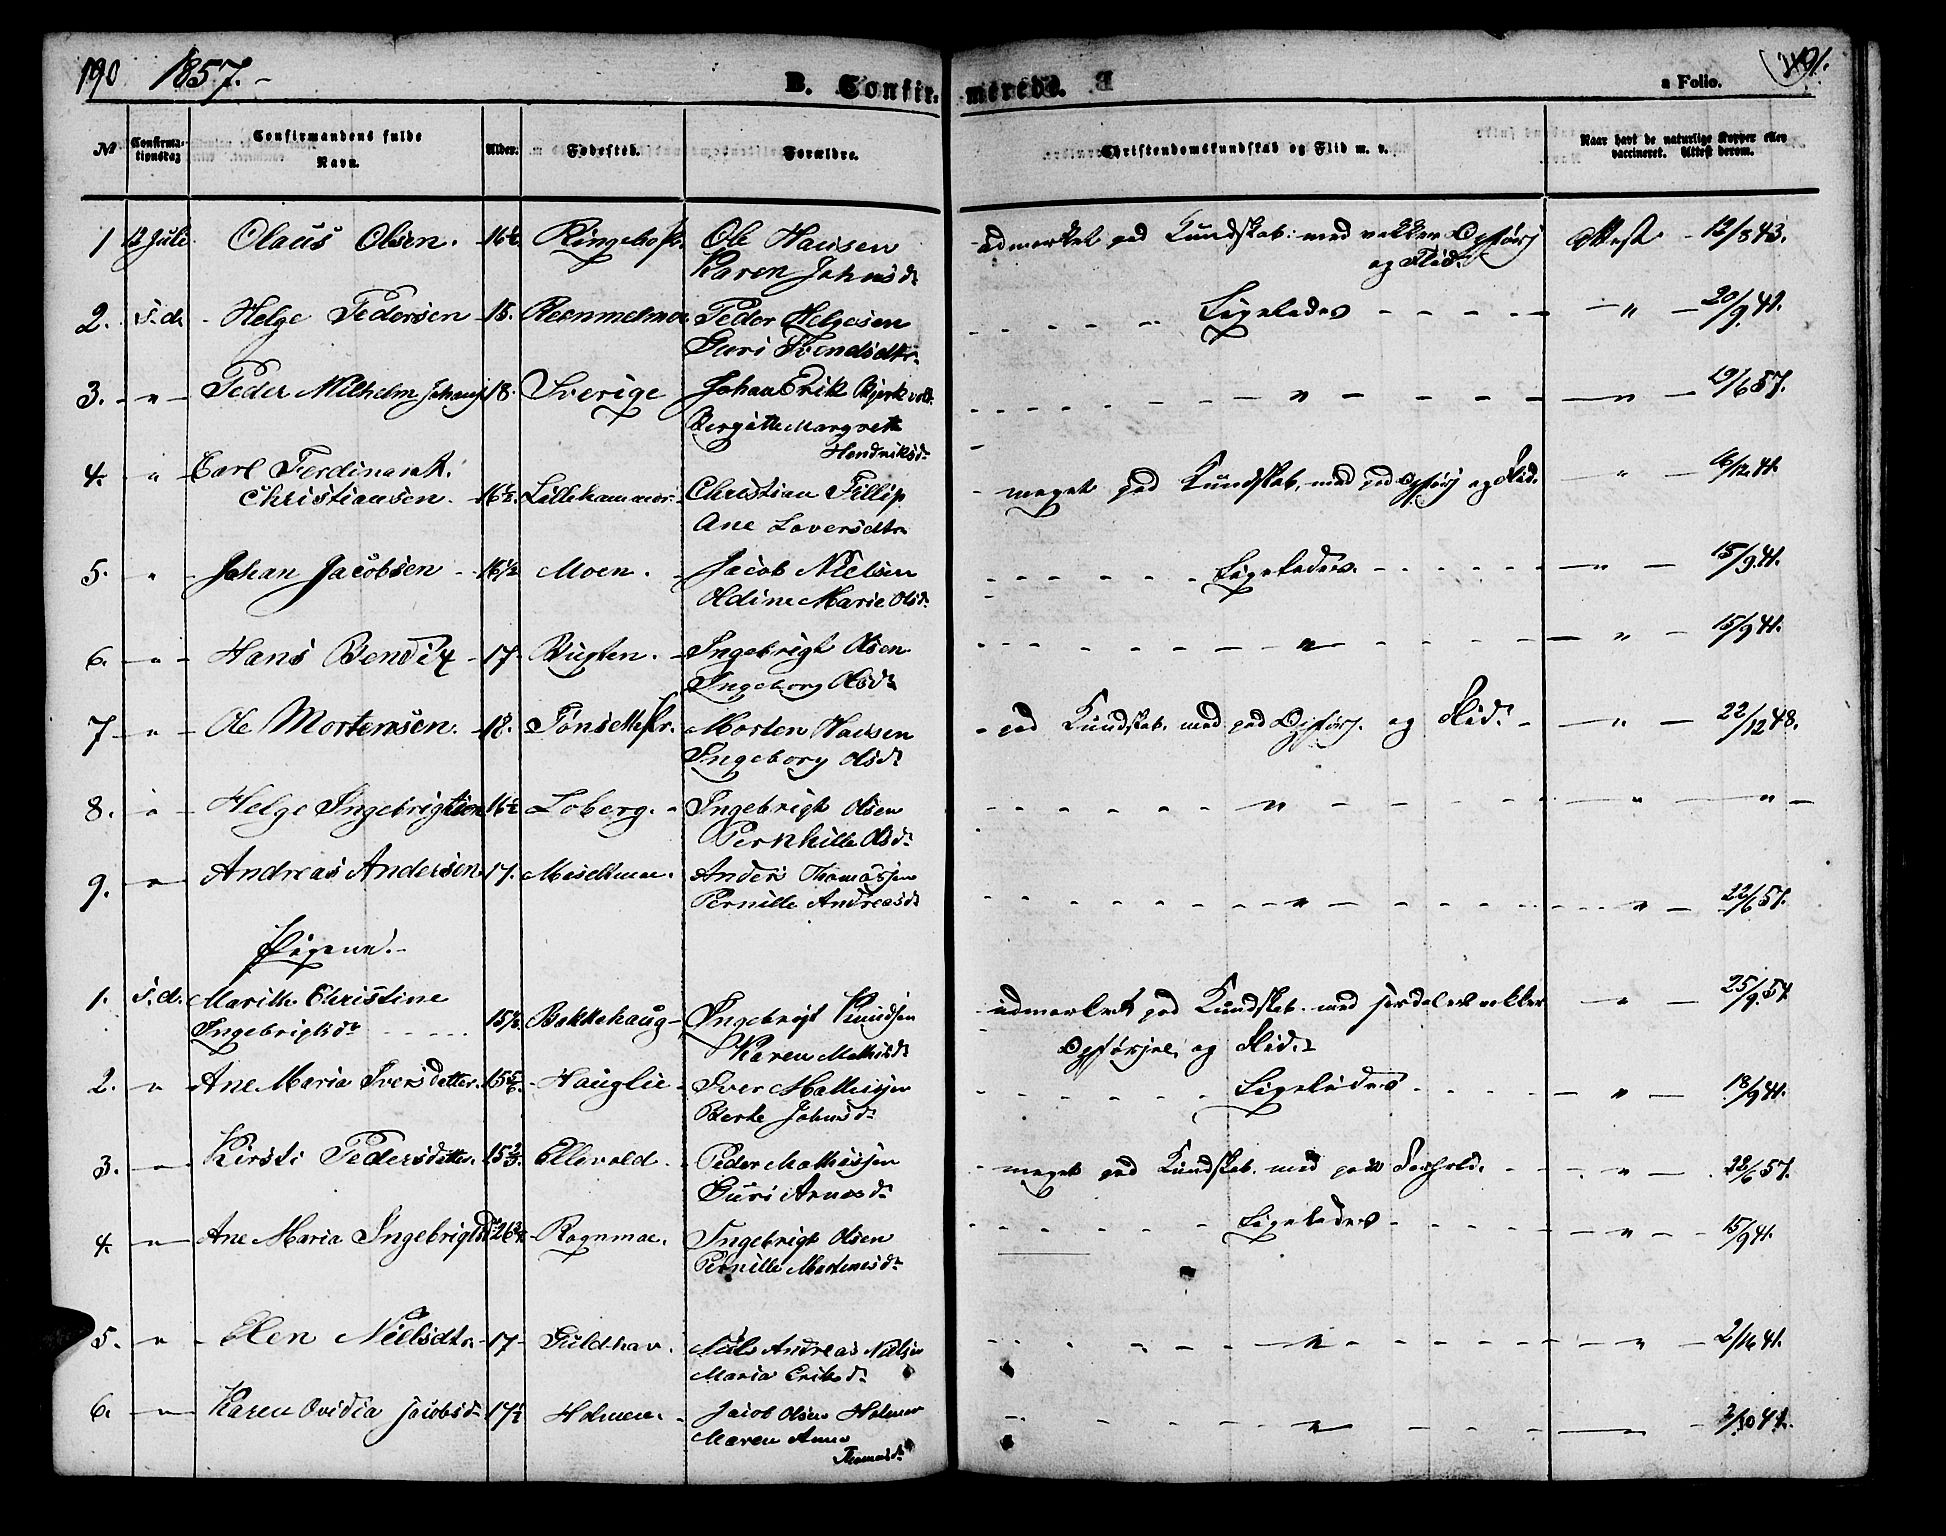 190 1857.
B. Confirmerede.
a Folio. 191.
No
Confirmationsdag
Confirmandens fulde Navn.
Alder.
Fødested.
Forældre.
Christendomskundskab og Flid m. v.
Naar havt de naturlige Kopper eller vaccineret. Attest derom.
1 12 Juli Olaus Olsen. 16½ Ole Hansen Kundskab. med vakker Opførsel Attest 12/8 43.
Karen Johnsd. og Flid.
2. S. d. Helge Pedersen 18. Peder Helgesen Ligeledes " 20/9 41.
Guri
3. " Peder Wilhelm 18. Sverige Johan Erik " " 19/6 57.
Bergitte Margrete
Hendriksd.
4. " Carl Ferdinand
Christiansen. 16½ Lillehammer Christian Fillip meget god Kundskab. med god Opførs og Flid. " 41.
Ane
5. " Johan Jacobsen 16½ Moen. Jacob Nielsen Ligeledes. " 15/9 41.
Oldine Marie Olsd.
6. " Hans Bendix 17 Bugten. Ingebrigt Olsen " " 15/9 41.
Ingeborg Olsd.
7 " Ole Mortensen. 18. Morten Hansen god Kundskab. med god Opførs. og Flid. " 22/12 48.
Ingeborg Olsd.
8. " Helge Ingebrigtsen 16½ Loberg. Ingebrigt Olsen " " "
Pernhille Olsd.
9. " Andreas Andersen 17. Anders Thomassen " " 22/6 57.
Pernille Andreasd.
Pigerne.
1. S. d. Marith Christine
Ingebrigtsd. 15½ Bakkehaug Ingebrigt Knudsen udmærket god Kundskab. med særdeles vakker " 25/9 57
Karen Mathisd. Opførsel og Flid.
2. " Ane Maria Iversdatter. 15 5/6 Hauglie Iver Mathisen Ligeledes " 18/9 41.
Johnsd.
3. " Kirsti Pedersdatter. 15 Ellevold. Peder Mathissen meget god Kundskab. med god Forhold. " 22/6 57.
Guri Arnesd.
4. " Ane Maria Ingebrigtsd. Rognmoe. Ingebrigt Olsen Ligeledes " 15/9 41.
Pernille Mortensd.
5. " Elen Nielsdtr. 17 Guldhav. Niels Andreas Nielsen " " 41.
Maria Eriksd.
6. " Karen Ovidia Jacobsd. 17½ Holmen. Jacob Olsen Holmen " 2/10 41.
Maren Anna
Thomasd.